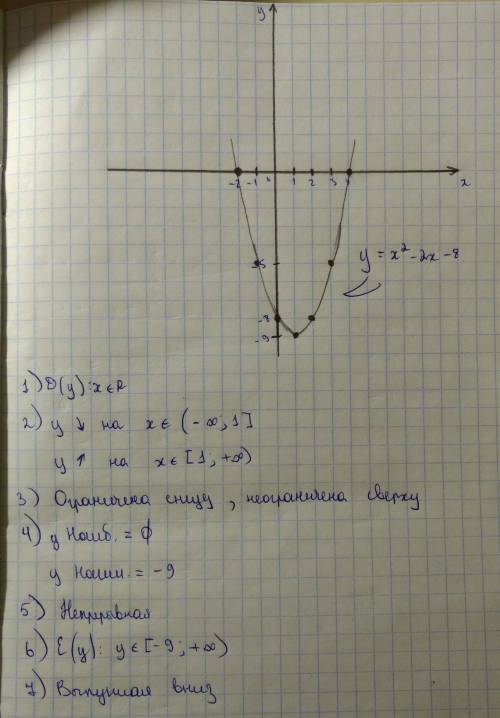 y
-2 -1 0 1 2 3 4 x
-5
y = x² - 2x - 8
-8
-9
1) D(y): x ∈ R
2) y ↓ на x ∈ (-∞; 1]
y ↑ на x ∈ [1; +∞)
3) Ограничена снизу, неограничена сверху
4) y Наиб. = ∅
y Наим. = -9
5) Непрерывная
6) E(y): y ∈ [-9; +∞)
7) Выпуклая вниз